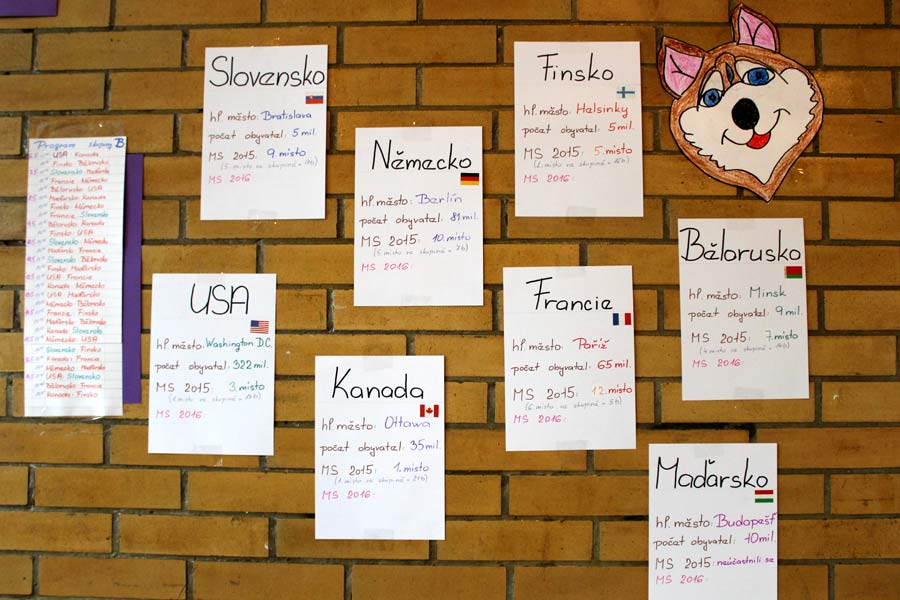 Program skupiny B
USA : Kanada
Finsko : Bělorusko
Slovensko : Maďarsko
Francie : Německo
Bělorusko : USA
Maďarsko : Kanada
Finsko : Německo
Francie : Slovensko
Bělorusko : Kanada
Finsko : USA
Slovensko : Německo
Maďarsko : Francie
Slovensko : Bělorusko
Finsko : Maďarsko
USA : Francie
Kanada : Německo
USA : Maďarsko
Německo : Bělorusko
Francie : Finsko
Maďarsko : Bělorusko
Kanada : Slovensko
Německo : USA
Slovensko : Finsko
Kanada : Francie
Německo : Maďarsko
USA : Slovensko
Bělorusko : Francie
Kanada : Finsko
Slovensko
hl. město: Bratislava
počet obyvatel: 5 mil.
MS 2015: 9. místo
(5. místo ve skupině
MS 2016:
Finsko
hl. město: Helsinky
počet obyvatel: 5 mil.
MS 2015: 5. místo
MS 2016:
Německo
hl. město: Berlín
počet obyvatel: 81 mil.
MS 2015: 10. místo
(5. místo ve skupině
MS 2016:
Bělorusko
hl. město: Minsk
počet obyvatel: 9 mil.
MS 2015: 7. místo
(4. místo ve skupině
MS 2016:
USA
hl. město: Washington D.C.
počet obyvatel: 322 mil.
MS 2015: 3. místo
(1. místo ve skupině
MS 2016:
Francie
hl. město: Paříž
počet obyvatel: 65 mil.
MS 2015: 12. místo
(6. místo ve skupině
MS 2016:
Kanada
hl. město: Ottawa
počet obyvatel: 35 mil.
MS 2015: 1. místo
(1. místo ve skupině = 21b)
MS 2016:
Maďarsko
hl. město: Budapešť
počet obyvatel: 10 mil.
MS 2015: neúčastnili se
MS 2016: